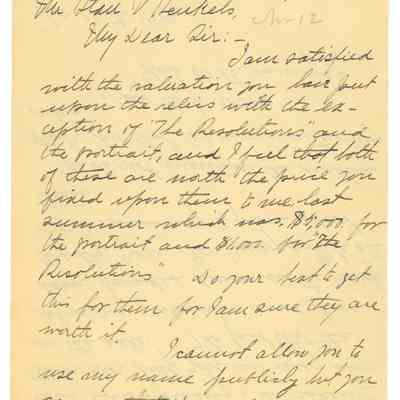 Mr. Stan V Henkels,
Nov 12
My Dear Sir:-
I am satisfied
with the valuation you have put
upon the relics with the ex-
ception of "The Resolutions" and
the portrait, and I feel that both
of these are worth the price you
fixed upon them to me last
summer which was. $5,000. for
the portrait and $1000. for "the
Resolutions" Do your best to get
this for them for I am sure they are
worth it.
I cannot allow you to
use my name publicly but you